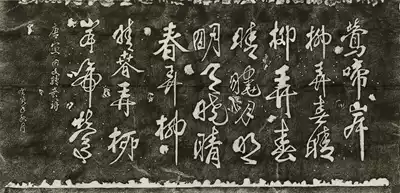 鶯啼岸
柳弄春晴
柳弄春
晴曉月明
明月曉晴
春弄柳
晴春弄柳
岸啼鶯
唐寅